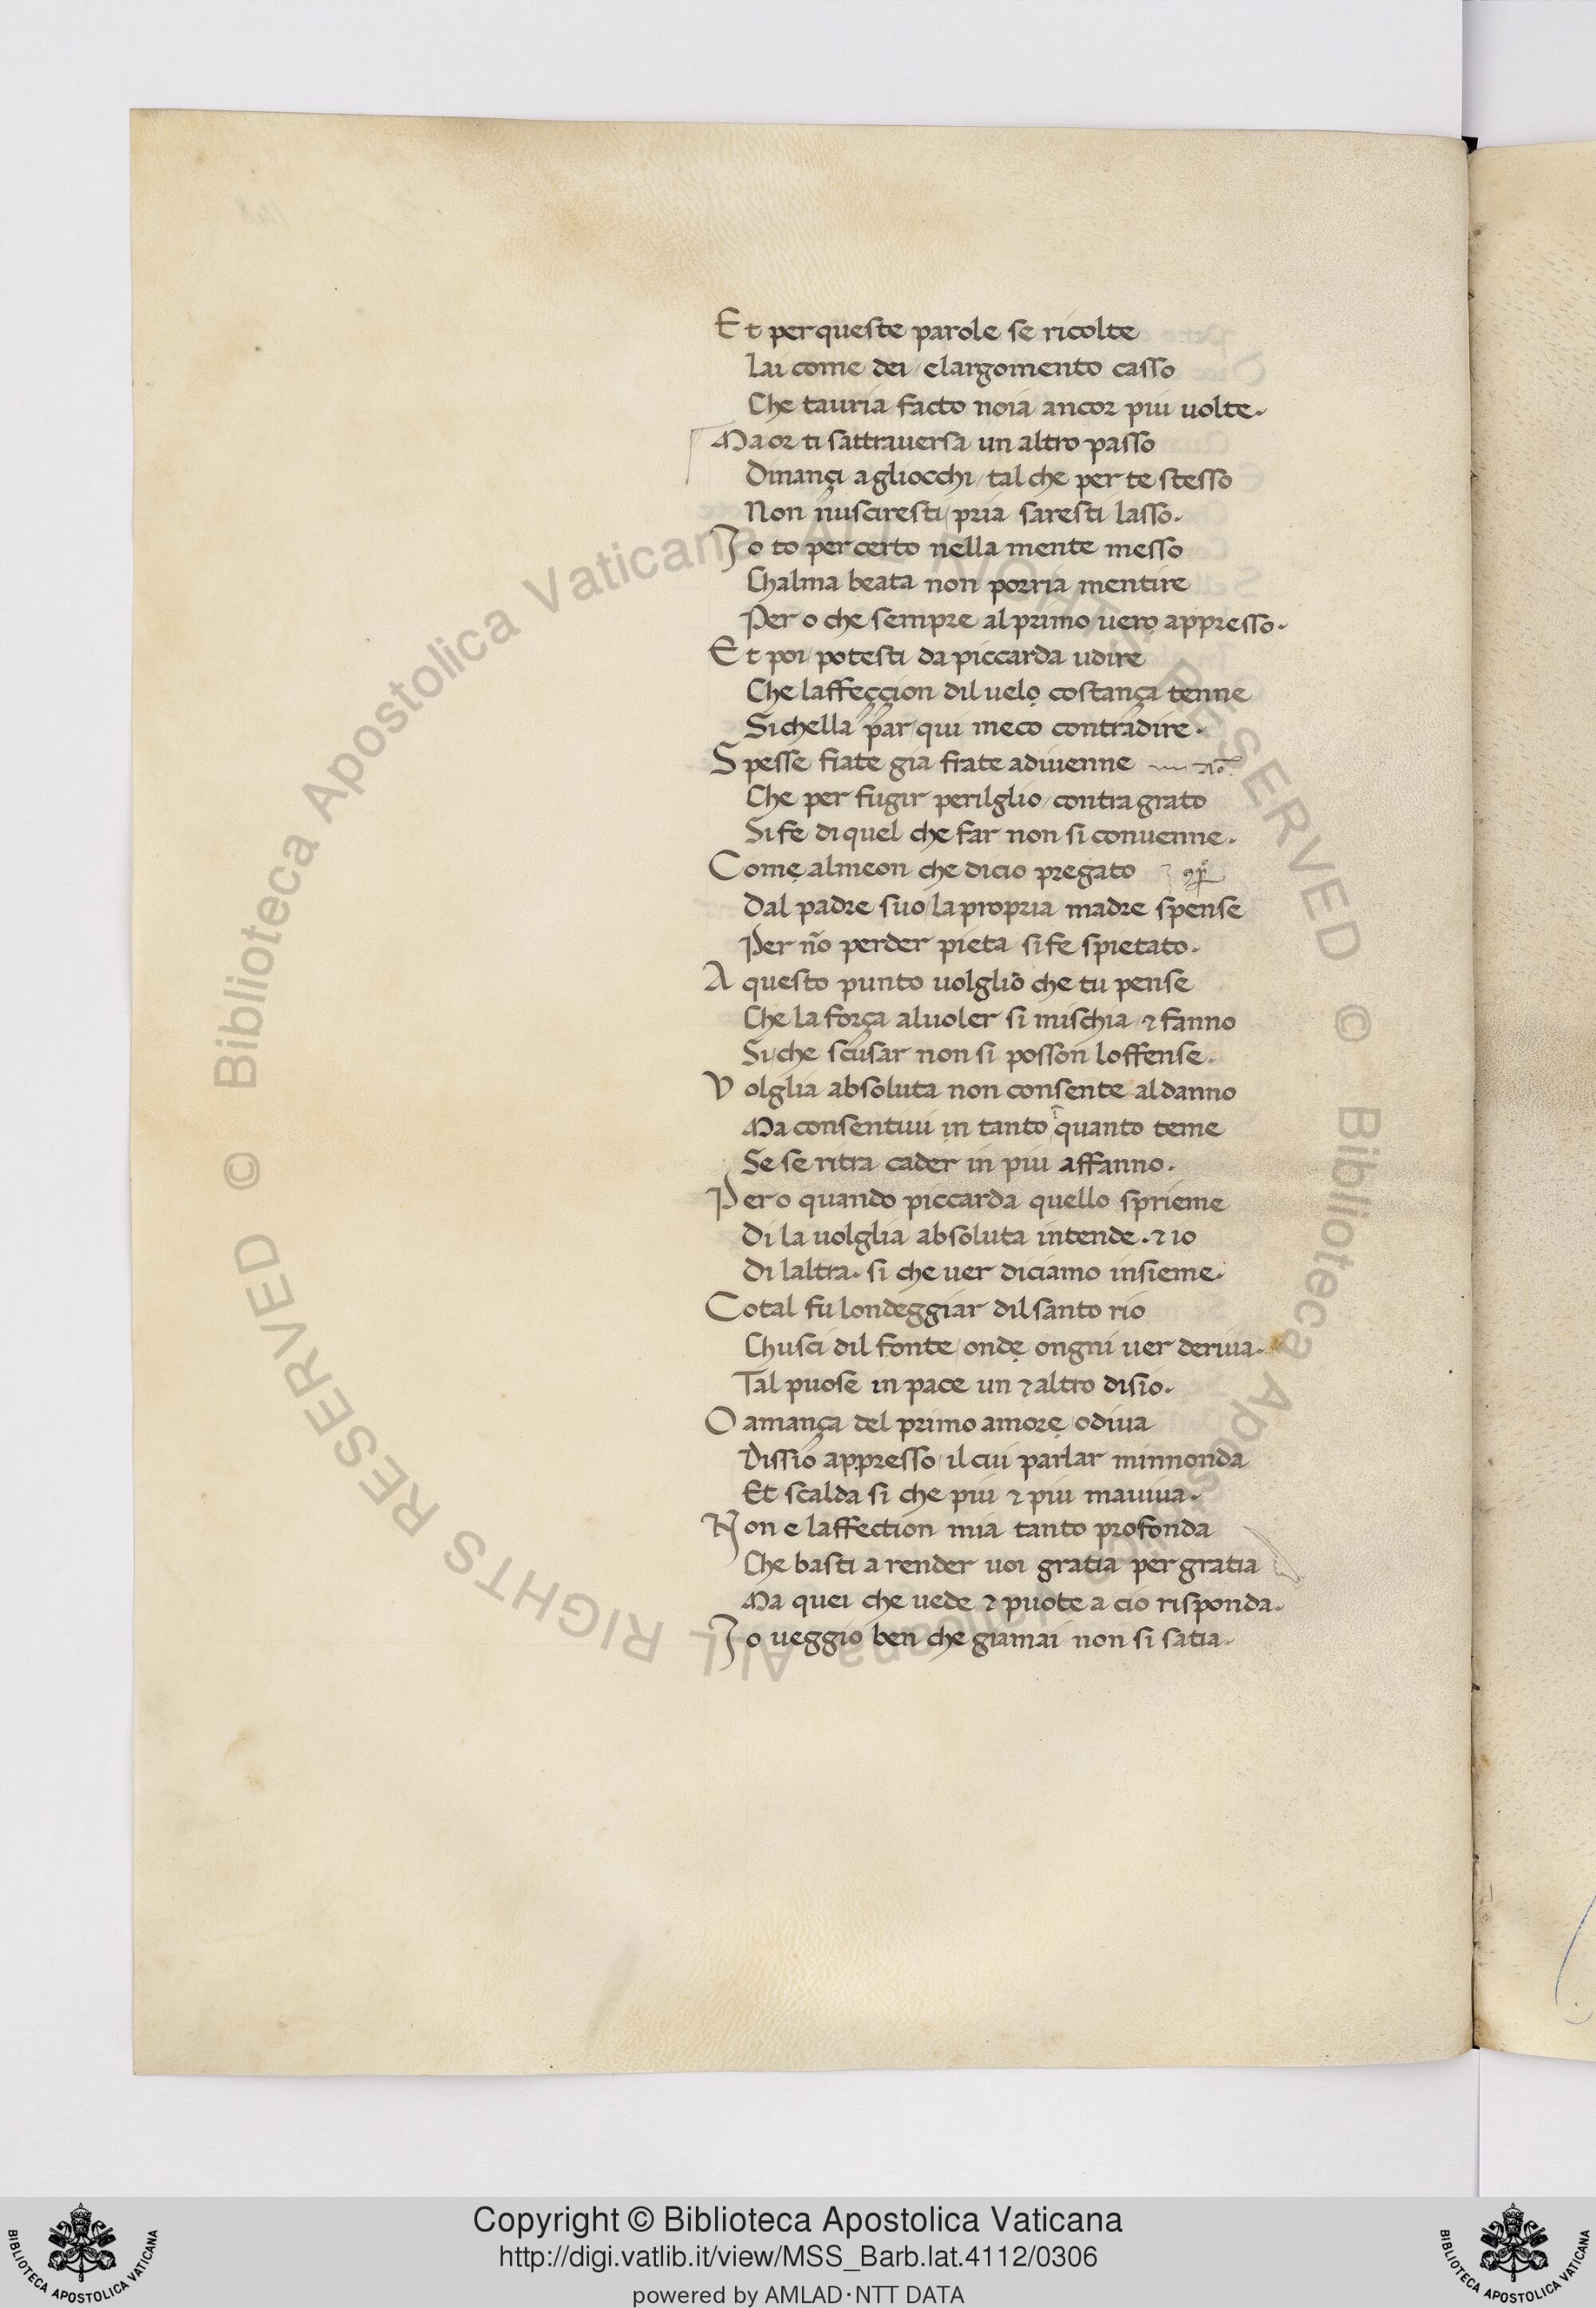 Et per queste parole se ricolte
Lai come dei / elargomento casso
Che tauria facto noia ancor piu uolte.
Ma or ti sattrauersa un altro passo
Dinançi agliocchi / tal che per te stesso
Non nusciresti / pria saresti lasso.
Io to per certo nella mente messo
Chalma beata non porria mentire
Pero che sempre al primo uero appresso.
Et poi / potesti da piccarda udire
Che laffecçion dil uelo costança tenne
Sichella par / qui meco contradire.
Spesse fiate gia frate adiuenne
Che per fugir perilglio / contra grato
Si fe di quel che far non si conuenne.
Come almeon che dicio pregato
Dal padre suo / la propria madre spense
Per no perder pieta si fe spietato.
A questo punto uolglio che tu pense
Che la força aluoler si mischia / ⁊ fanno
Si / che scusar non si posson loffense.
Volglia absoluta non consente al danno
Ma consentiui in tanto ī quanto teme
Se se ritra cader in piu affanno.
Pero quando piccarda quello sprieme
Di la uolglia absoluta intende. ⁊ io
Di laltra. si che uer diciamo insieme.
Cotal fu londeggiar dil santo rio
Chusci dil fonte / onde ongni uer deriua.
Tal puose in pace un ⁊ altro disio.
O amança del primo amore / o diua
Dissio appresso / il cui parlar minnonda
Et scalda si che piu ⁊ piu mauiua.
Non e laffection mia tanto profonda
Che basti a render uoi gratia per gratia
Ma quei che uede ⁊ puote a cio risponda.
Io ueggio ben che giamai non si satia.
© Biblioteca Apostolica Vaticana ALL RIGHTS RESERVED © Biblioteca Apostolica Vaticana ALL RIGHTS RESERVED
Copyright © Biblioteca Apostolica Vaticana
http://digi.vatlib.it/view/MSS_Barb.lat.4112/0306
powered by AMLAD·NTT DATA
BIBLIOTECA APOSTOLICA VATICANA
BIBLIOTECA APOSTOLICA VATICANA